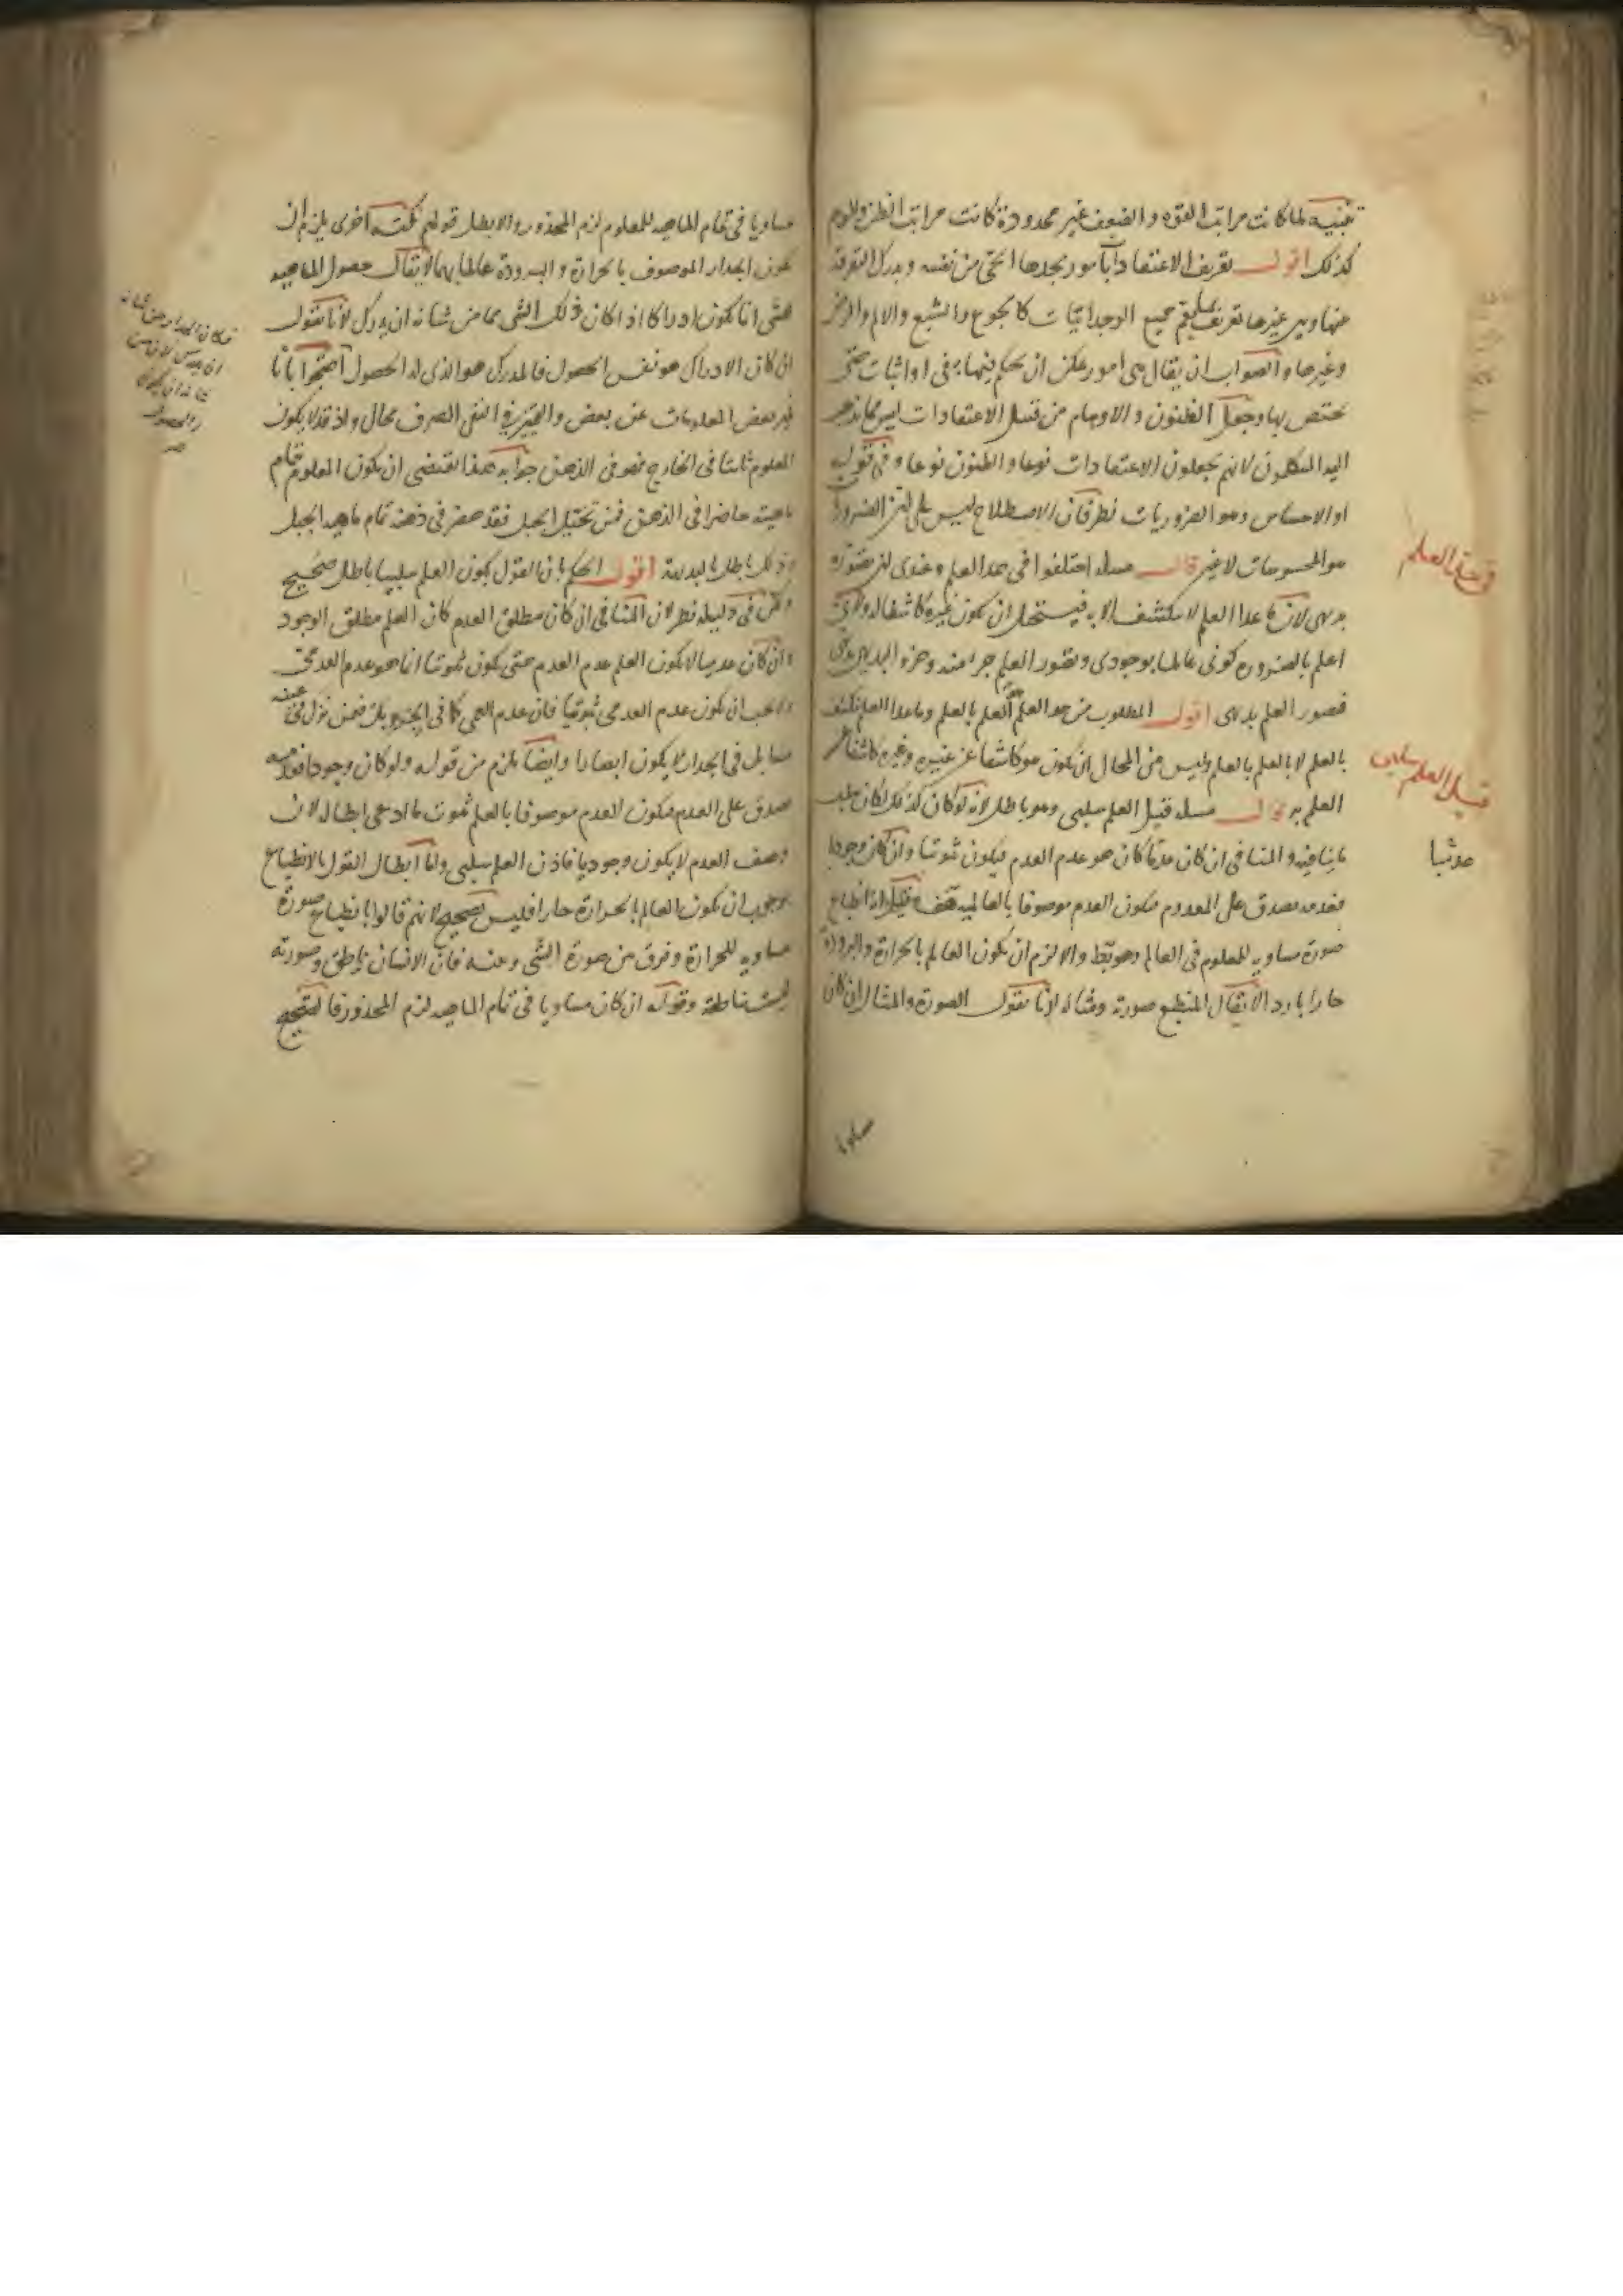 تنبيه لما كانت مراتب القوة والضعف غير محدودة كانت مراتب الظن والوهم
كذلك اقول تعريف الاعتقادات بامور يجدها الحى من نفسه ويدرك التفرقة
منها وبين غيرها تعريف يعم جميع الوجدانيات كالجوع والشبع والالم والفرح
وغيرها والصواب ان يقال هى امور يمكن ان يحكم فيها بنفى او اثبات حتى
تختص بها وجعل الظنون والاوهام من قبيل الاعتقادات ليس مما يذهب
اليه المتكلمون لانهم يجعلون الاعتقادات نوعا والظنون نوعا وفى قوله
او الاحساس وهو الضروريات نظر فان الاصطلاح ليس على ان الضروريات
هو المحسوسات لا غير قال مسئلة اختلفوا فى حد العلم وعندى ان تصوره
بديهى لان ما عدا العلم لا ينكشف الا به فيستحيل ان يكون غيره كاشفا له ولانى
اعلم بالضرورة كونى عالما بوجودى وتصور العلم جزء منه وجزء البديهى بديهى
فتصور العلم بديهى اقول المطلوب من حد العلم العلم بالعلم وما عدا العلم ينكشف
بالعلم لا بالعلم بالعلم وليس من المحال ان يكون هو كاشفا عن غيره وغيره كاشفا عن
العلم به قال مسئلة قيل العلم سلبى وهو باطل لانه لو كان كذلك لكان سلب
ما ينافيه والمنافى ان كان عدما كان هو عدم العدم فيكون ثبوتيا وان كان وجودا
فعدمه يصدق على المعدوم فيكون العدم موصوفا بالعالمية هف وقيل انه انطباع
صورة مساوية للمعلوم فى العالم وهو بط والا لزم ان يكون العالم بالحرارة والبرودة
حارا باردا لا يقال المنطبع صورته ومثاله لانا نقول الصورة والمثال ان كان
فى حد العلم
قيل العلم سلبى
مساويا
مساويا فى تمام الماهية للمعلوم لزم المحذور والا بطل قولهم نكتة اخرى يلزم ان
يكون الجدار الموصوف بالحرارة والبرودة عالما بهما لا يقال حصول الماهية
للشى انما يكون ادراكا اذا كان ذلك الشى مما من شانه ان يدرك لانا نقول
ان كان الادراك هو نفس الحصول فالمدرك هو الذى له الحصول احتجوا بانا
نميز بعض المعلومات عن بعض والتميز فى النفى الصرف محال واذ قد لا يكون
المعلوم ثابتا فى الخارج فهو فى الذهن جوابه هذا يقتضى ان يكون المعلوم بتمام
ماهيته حاضرا فى الذهن فمن تخيل الجبل فقد حضر فى ذهنه تمام ماهية الجبل
وذلك باطل بالبديهة اقول الحكم بان القول بكون العلم سلبيا باطل صحيح
ولكن فى دليله نظر لان المنافى ان كان مطلق العدم كان العلم مطلق الوجود
وان كان عدميا لا يكون العلم عدم العدم حتى يكون ثبوتيا انما هو عدم العدمى
ولا يجب ان يكون عدم العدمى ثبوتيا فان عدم العمى كما فى الجنين فمن نزل فى عينه
لا يكون ابصارا وايضا يلزم من قوله ولو كان وجودا فعدمه
يصدق على العدم فيكون العدم موصوفا بالعلم ثبوت ما ادعى ابطاله لان
وصف العدم لا يكون وجوديا فاذن العلم سلبى واما ابطال القول بالانطباع
بوجوب ان يكون العالم بالحرارة حارا فليس بصحيح لانهم قالوا بانطباع صورة
مساوية للحرارة وفرق بين صورة الشى وعينه فان الانسان ناطق وصورته
ليست ناطقة وقوله ان كان مساويا فى تمام الماهية لزم المحذور فالصحيح